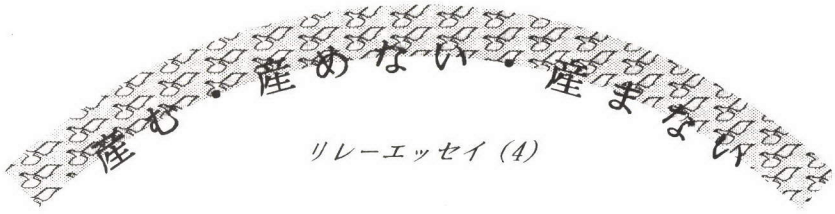 産む・産めない・産まない
リレーエッセイ(4)